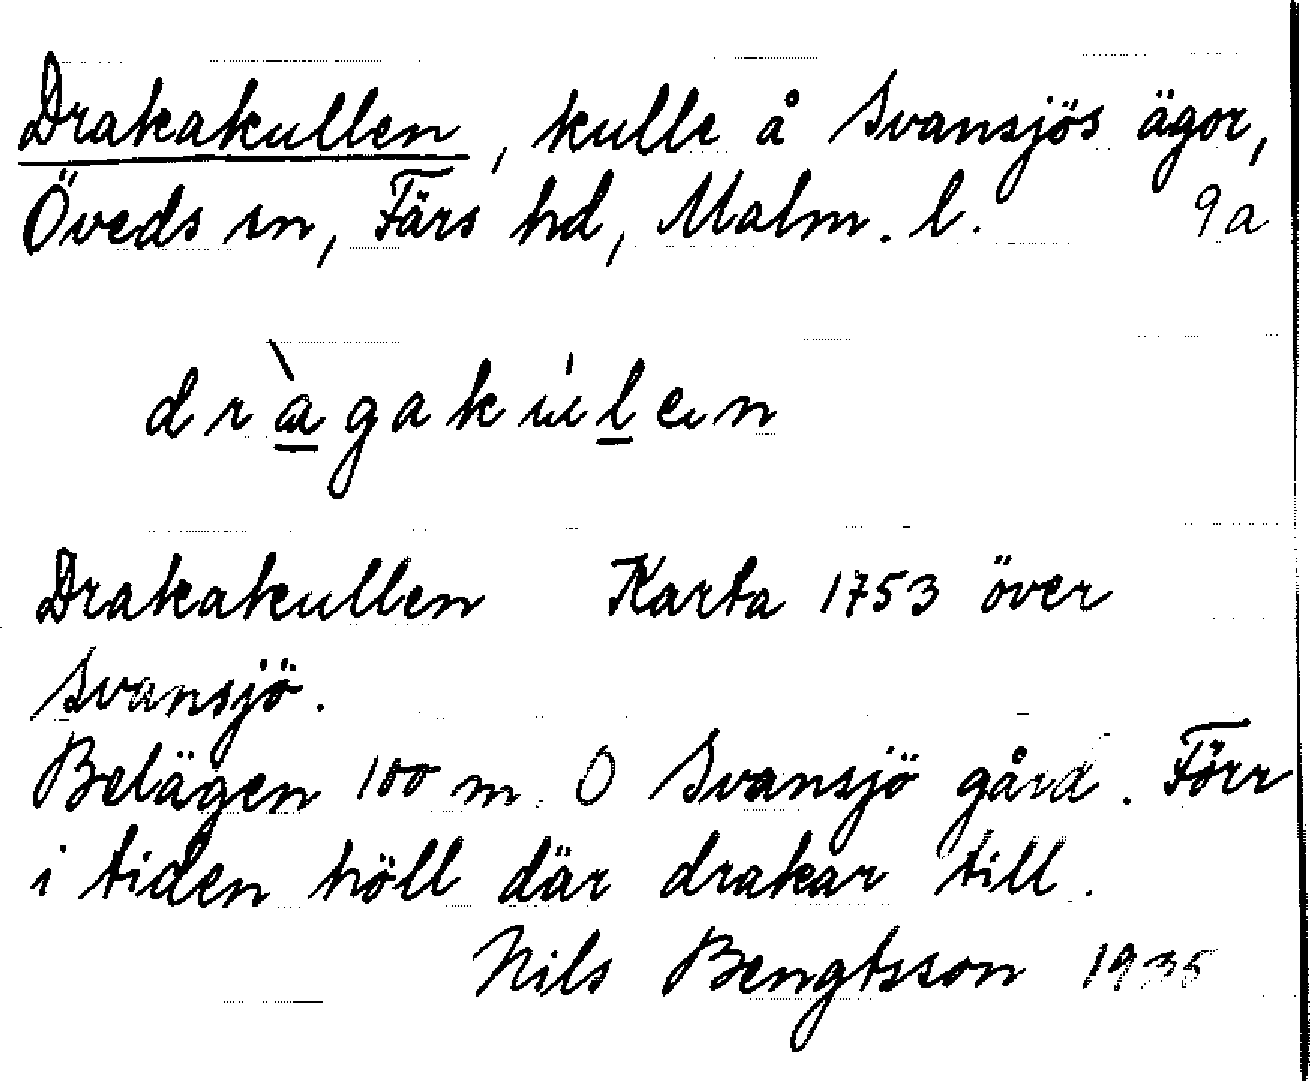 Drakakullen, kulle å Svansjös ägor,
Öveds sn, Färs hd, Malm. l. 9a
dràgakúlen
Drakakullen Karta 1753 över
Svansjö.
Belägen 100 m. O Svansjö gård. Förr
i tiden höll där drakar till.
Nils Bengtsson 1935